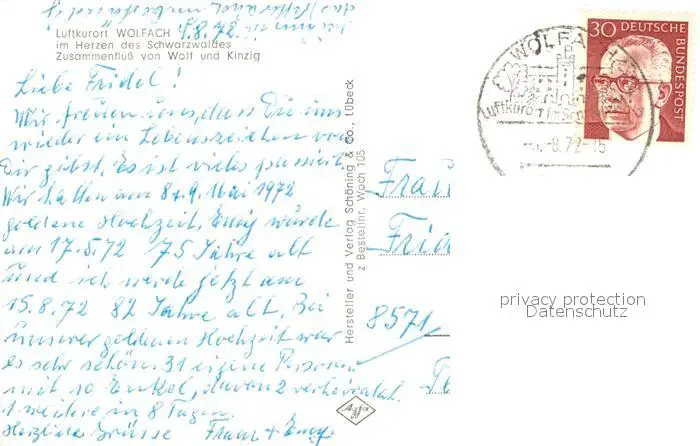 4.8.72
Luftkurort WOLFACH
im Herzen des Schwarzwaldes
Zusammenfluß von Wolf und Kinzig
Liebe Fridel!
Wir freuen uns, dass Du uns
wieder ein Lebenszeichen von
Dir gibst. Es ist vieles passiert.
Wir hatten am 8+9. Mai 1972
goldene Hochzeit, Emy wurde
am 17.5.72 75 Jahre alt
und ich werde jetzt am
15.8.72 82 Jahre alt. Bei
unserer goldenen Hochzeit war
es sehr schön 31 eigene Personen
mit 10 Enkel, davon 2 verheiratet
1 weitere in 8 Tagen.
Herzliche Grüsse Franz + Emy.
Hersteller und Verlag Schöning & Co., Lübeck
z Bestellnr. Wolch 105
Agfa
WOLFA
Luftkurort im Sch
-8.72-15
30 DEUTSCHE
BUNDESPOST
Frau
Frid
8571
privacy protection
Datenschutz